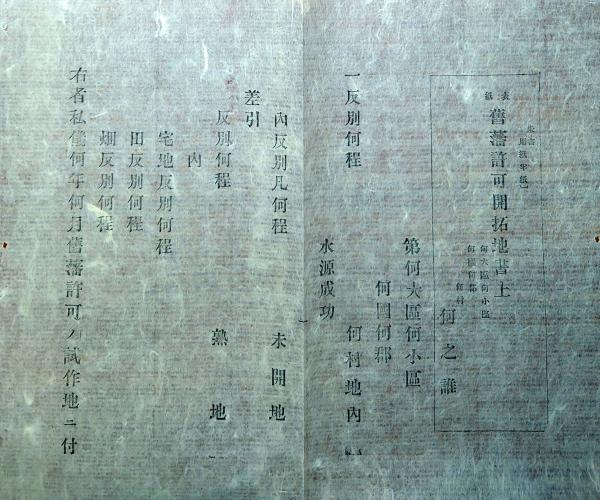 表紙
舊藩許可開拓地書上
何大區何小區
何國何郡
何村
何之誰
第何大區何小區
何國何郡
何村地內
一反別何程
水源成功
內反別凡何程 未開地
差引
反別何程 熟地
內
宅地反別何程
田反別何程
畑反別何程
右者私儀何年何月舊藩許可ノ試作地ニ付